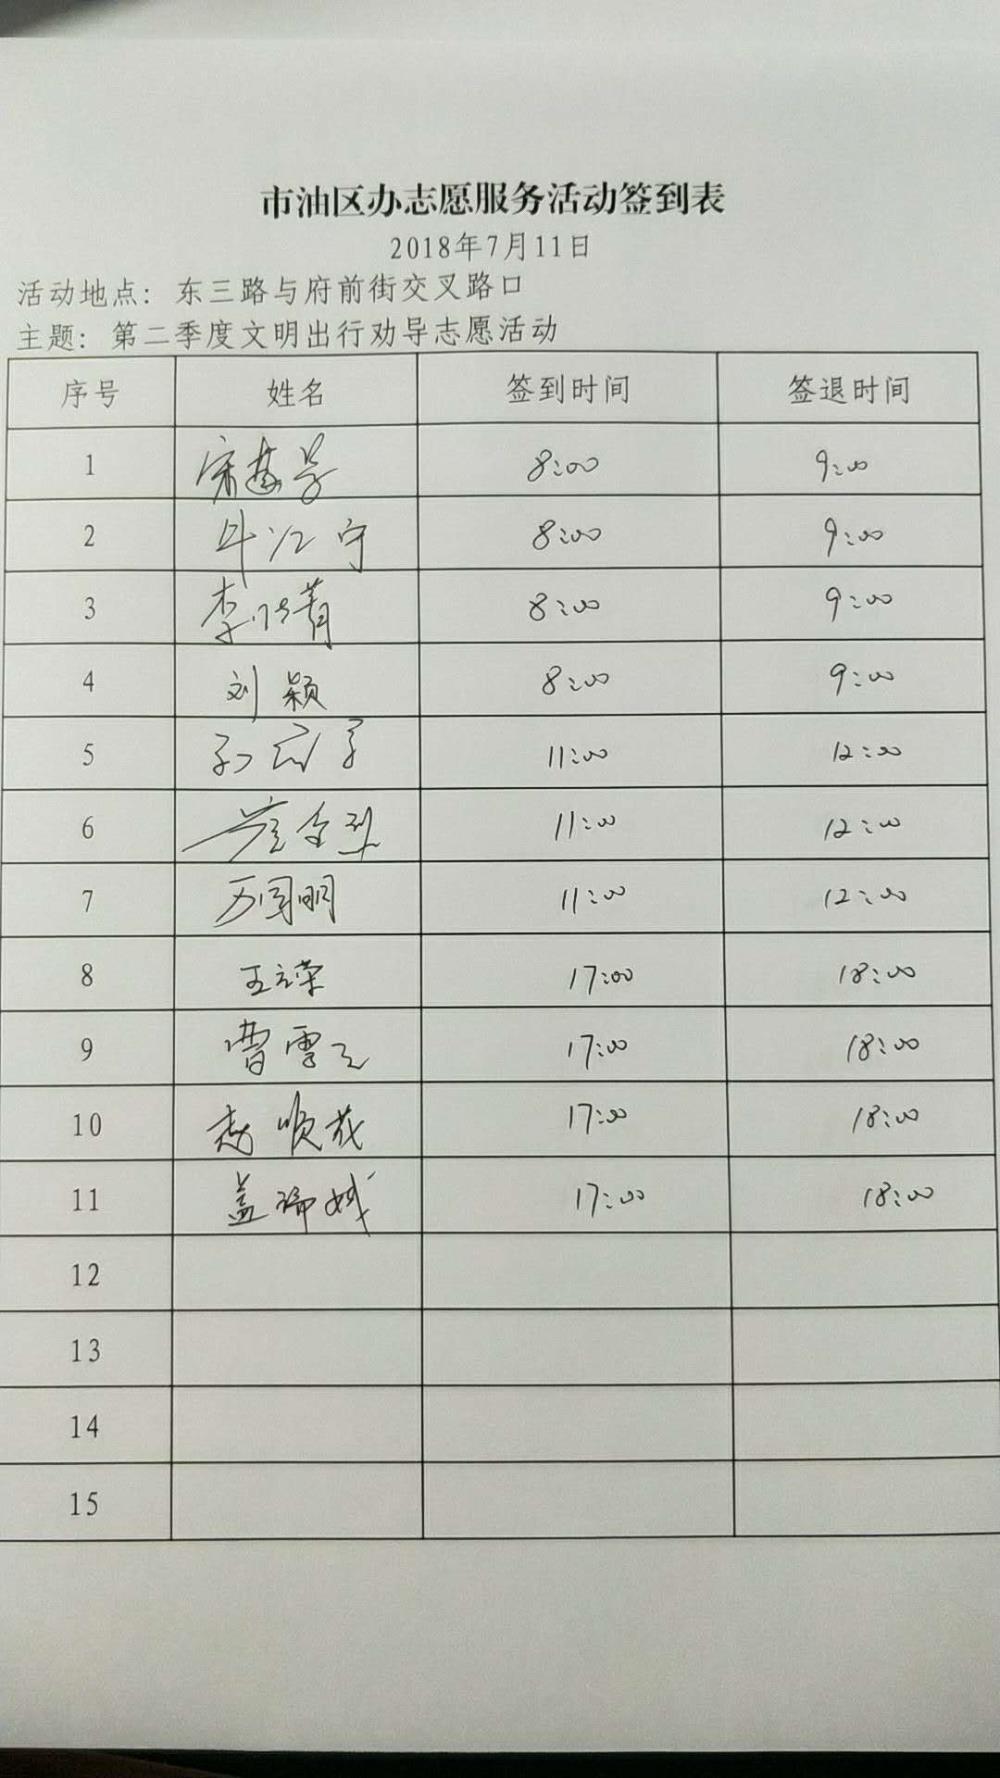 市油区办志愿服务活动签到表
2018年7月11日
活动地点：东三路与府前街交叉路口
主题：第二季度文明出行劝导志愿活动
序号 姓名 签到时间 签退时间
1 8:00 9:00
2 牛江宁 8:00 9:00
3 李 8:00 9:00
4 刘颖 8:00 9:00
5 孙 11:00 12:00
6 11:00 12:00
7 万国明 11:00 12:00
8 王立荣 17:00 18:00
9 曹雪 17:00 18:00
10 赵顺花 17:00 18:00
11 盖瑞 17:00 18:00
12
13
14
15